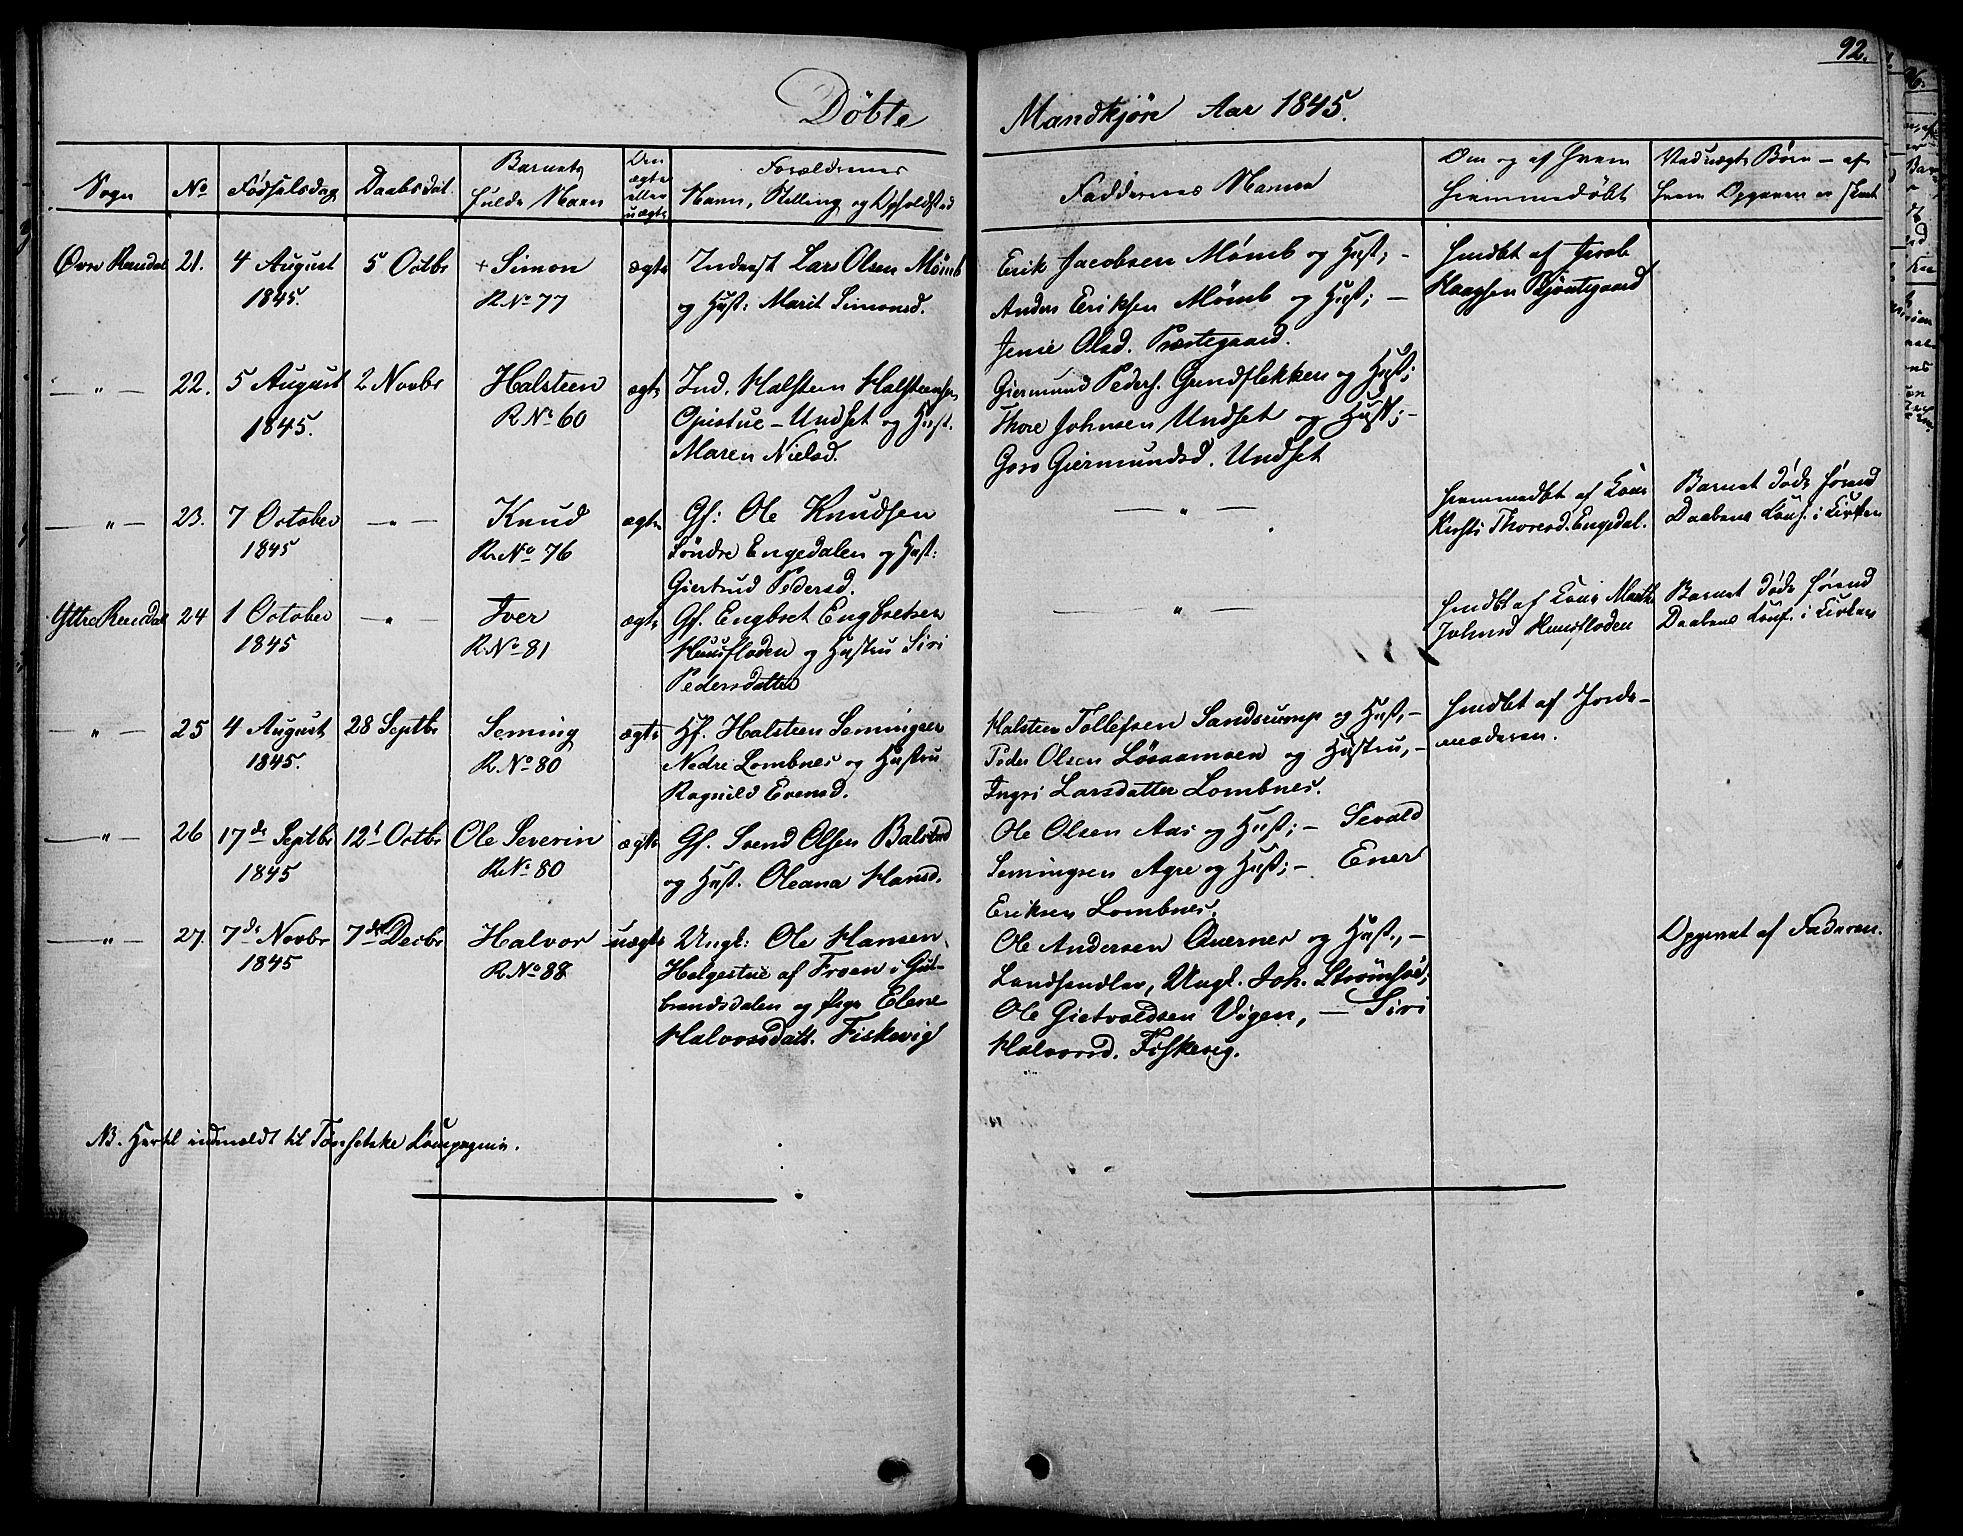 92.
Døbte Mandkjøn Aar 1845.
Sogn
No
Fødselsdag
Daabsdat.
Barnets fulde Navn
Om ægte eller uægte
Forældrenes Navn, Stilling og Opholdsted
Faddernes Navne
Om og af hvem hjemmedøbt
Ved uægte Børn – af hvem Opgaven er skeet
Øvre Rendal 21. 4 August 1845. 5 Octbr + Simon R. No 77 ægte
Inderst Lars Olsen Mømb
og Hust: Marit Simonsd.
Erik Jacobsen Mømb og Hust; –
Anders Eriksen Mømb og Hust; –
Jenie Olsd. Præstegaard.
hmdbt af Jacob
Haagsen
— " — 22. 5 August 1845. 2 Novbr Halsteen R No 60 ægte
Ind. Halsten Halsteensen
Opistue – Undset og Hust.
Maren Nielsd.
Giermund Peders. Grindflekken og Hust;
Thore Johnsen Undset og Hust; –
Goro Giermundsd. Undset
— " — 23. 7 October 1845 — " — Knud R. No 76 ægte
Gf: Ole Knudsen
Søndre Engedalen og Hust:
Giertrud Pedersd.
— " —
hjemmedbt af Kone
Kirsti Thoresd. Engedal.
Barnet døde førend
Daabens Conf. i Kirken
Yttre Rendal 24 1 October 1845 — " — Iver R. No 81 ægte
Gf. Engbret Engbretsen
Huusfloden og Hustru Siri
Pedersdatter
— " —
hmdbt af Kone Marthe
Johnsd Huusfloden
Barnet døde førend
Daabens Conf. i Kirken
— " — 25 4 August 1845. 28 Septbr Seming R. No 80 ægte
Hf. Halsteen Semingsen
Nedre Lombnes og Hustru
Ragnild Evensd.
Halsteen Tollefsen Sandstrump og Hust, –
Peder Olsen Løsaamoen og Hustru, –
Ingri Larsdatter Lombnes.
hmdbt af Jorde-
moderen.
— " — 26 17de Septbr 1845 12t Octbr Ole Severin R. No 80 ægte
Gf. Svend Olsen Balstad
og Hust. Oleana Hansd.
Ole Olsen Aas og Hust; – Sevald
Semingsen Agre og Hust; – Ener
Eriksen Lombnes.
— " — 27. 7de Novbr 1845 7de Decbr Halvor R. No 88 uægte
Ungk: Ole Hansen
Helgestue af Froen i Gul-
brandsdalen og Pige Elene
Halvorsdatt. Fiskevig
Ole Andersen Qvernes og Hust, –
Landhandler, Ungk. Joh. Strømsøe;
Ole Gietvoldsen Vigen, – Siri
Halvorsd. Fiskevig.
Opgevet af Faderen.
NB. Hertil indmeldt til Tønsetske Compagnie.